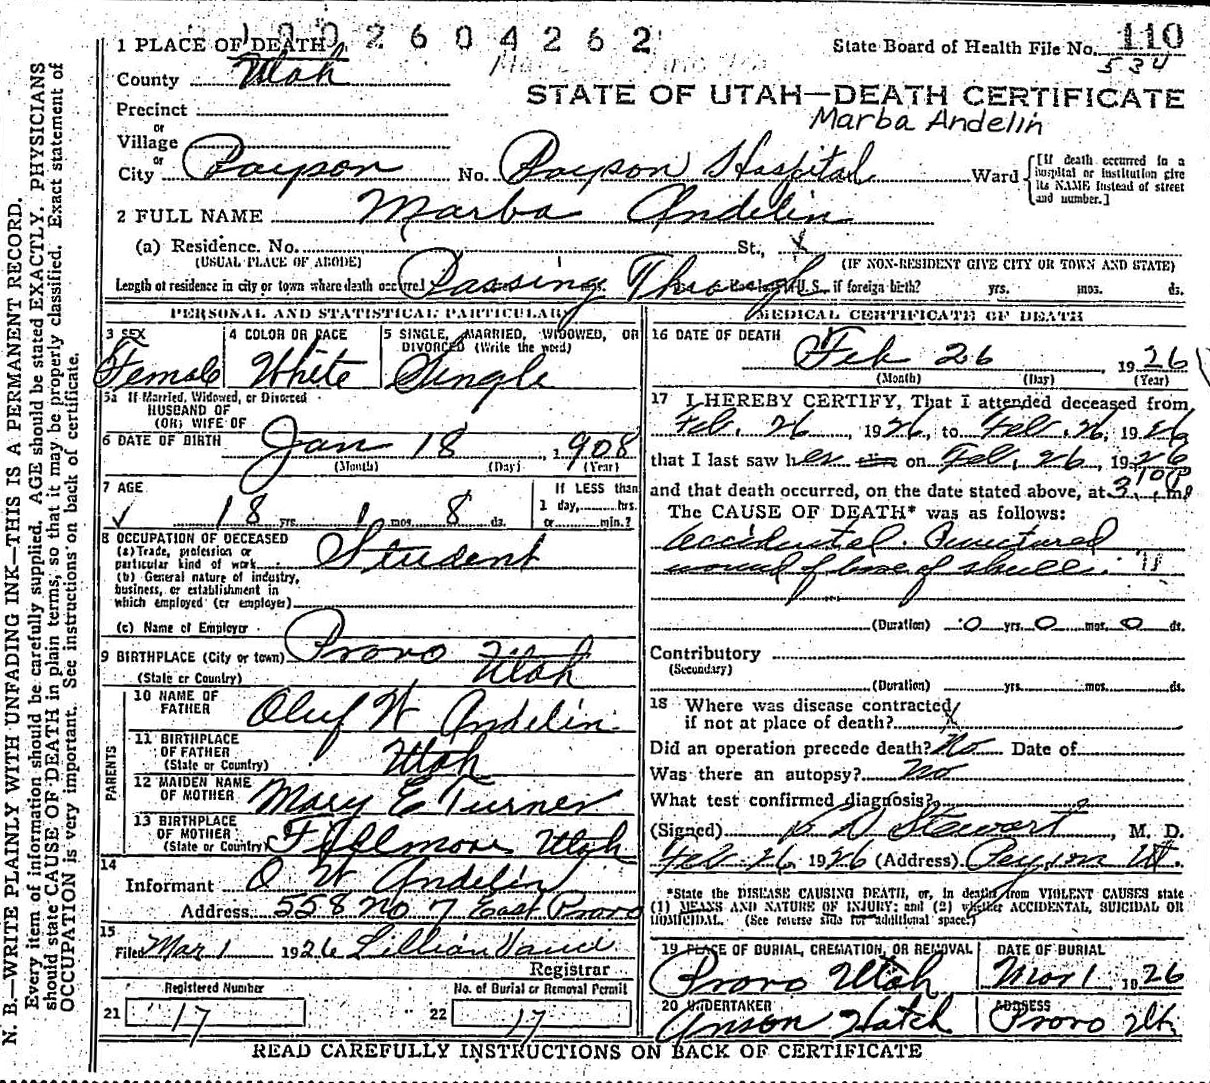 1002604262
1 PLACE OF DEATH
State Board of Health File No. 110
534
County Utah
STATE OF UTAH—DEATH CERTIFICATE
Precinct
Marba Andelin
or
Village
or
City Payson No. Payson Hospital Ward
[If death occurred in a
hospital or institution give
its NAME instead of street
and number.]
2 FULL NAME Marba Andelin
(a) Residence. No. St.,
(USUAL PLACE OF ABODE) (IF NON-RESIDENT GIVE CITY OR TOWN AND STATE)
Length of residence in city or town where death occurred Passing Through U.S., if foreign birth? yrs. mos. ds.
PERSONAL AND STATISTICAL PARTICULARS
3 SEX
Female
4 COLOR OR RACE
White
5 SINGLE, MARRIED, WIDOWED, OR
DIVORCED (Write the word)
Single
5a If Married, Widowed, or Divorced
HUSBAND OF
(OR) WIFE OF
6 DATE OF BIRTH Jan 18, 1908
(Month) (Day) (Year)
7 AGE
18 yrs. 1 mos. 8 ds.
If LESS than
1 day, hrs.
or min.?
8 OCCUPATION OF DECEASED
(a) Trade, profession or
particular kind of work Student
(b) General nature of industry,
business, or establishment in
which employed (or employer)
(c) Name of Employer
9 BIRTHPLACE (City or town) Provo
(State or Country) Utah
PARENTS
10 NAME OF
FATHER Oluf W Andelin
11 BIRTHPLACE
OF FATHER
(State or Country) Utah
12 MAIDEN NAME
OF MOTHER Mary E Turner
13 BIRTHPLACE
OF MOTHER
(State or Country) Fillmore Utah
14
Informant O W Andelin
Address 558 No 7 East Provo
15
Filed Mar 1 1926 Lillian
Registrar
Registered Number
21 17
No. of Burial or Removal Permit
22 17
MEDICAL CERTIFICATE OF DEATH
16 DATE OF DEATH
Feb 26 1926
(Month) (Day) (Year)
17 I HEREBY CERTIFY, That I attended deceased from
Feb. 26, 1926, to Feb. 26, 1926
that I last saw her alive on Feb. 26, 1926
and that death occurred, on the date stated above, at 310 P m
The CAUSE OF DEATH* was as follows:
Accidental. Punctured
wound of base of skull.
(Duration) 0 yrs. 0 mos. 0 ds.
Contributory
(Secondary)
(Duration) yrs. mos. ds.
18 Where was disease contracted
if not at place of death?
Did an operation precede death? No Date of
Was there an autopsy? no
What test confirmed diagnosis?
(Signed) Stewart, M. D.
Feb 26, 1926 (Address) Payson Ut.
*State the DISEASE CAUSING DEATH, or, in deaths from VIOLENT CAUSES state
(1) MEANS AND NATURE OF INJURY; and (2) whether ACCIDENTAL, SUICIDAL OR
HOMICIDAL. (See reverse side for additional space.)
19 PLACE OF BURIAL, CREMATION, OR REMOVAL
Provo Utah
DATE OF BURIAL
Mar 1 1926
20 UNDERTAKER
Anson Hatch
ADDRESS
Provo Ut
READ CAREFULLY INSTRUCTIONS ON BACK OF CERTIFICATE
N. B.—WRITE PLAINLY WITH UNFADING INK—THIS IS A PERMANENT RECORD.
Every item of information should be carefully supplied. AGE should be stated EXACTLY. PHYSICIANS
should state CAUSE OF DEATH in plain terms, so that it may be properly classified. Exact statement of
OCCUPATION is very important. See instructions on back of certificate.